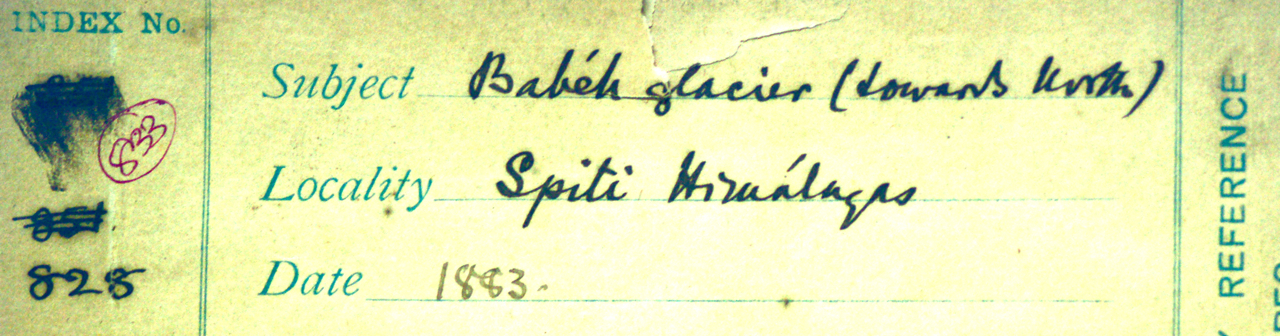 INDEX No.
833
828
Subject Babéh glacier (towards North)
Locality Spiti Himálayas
Date 1883.
REFERENCE